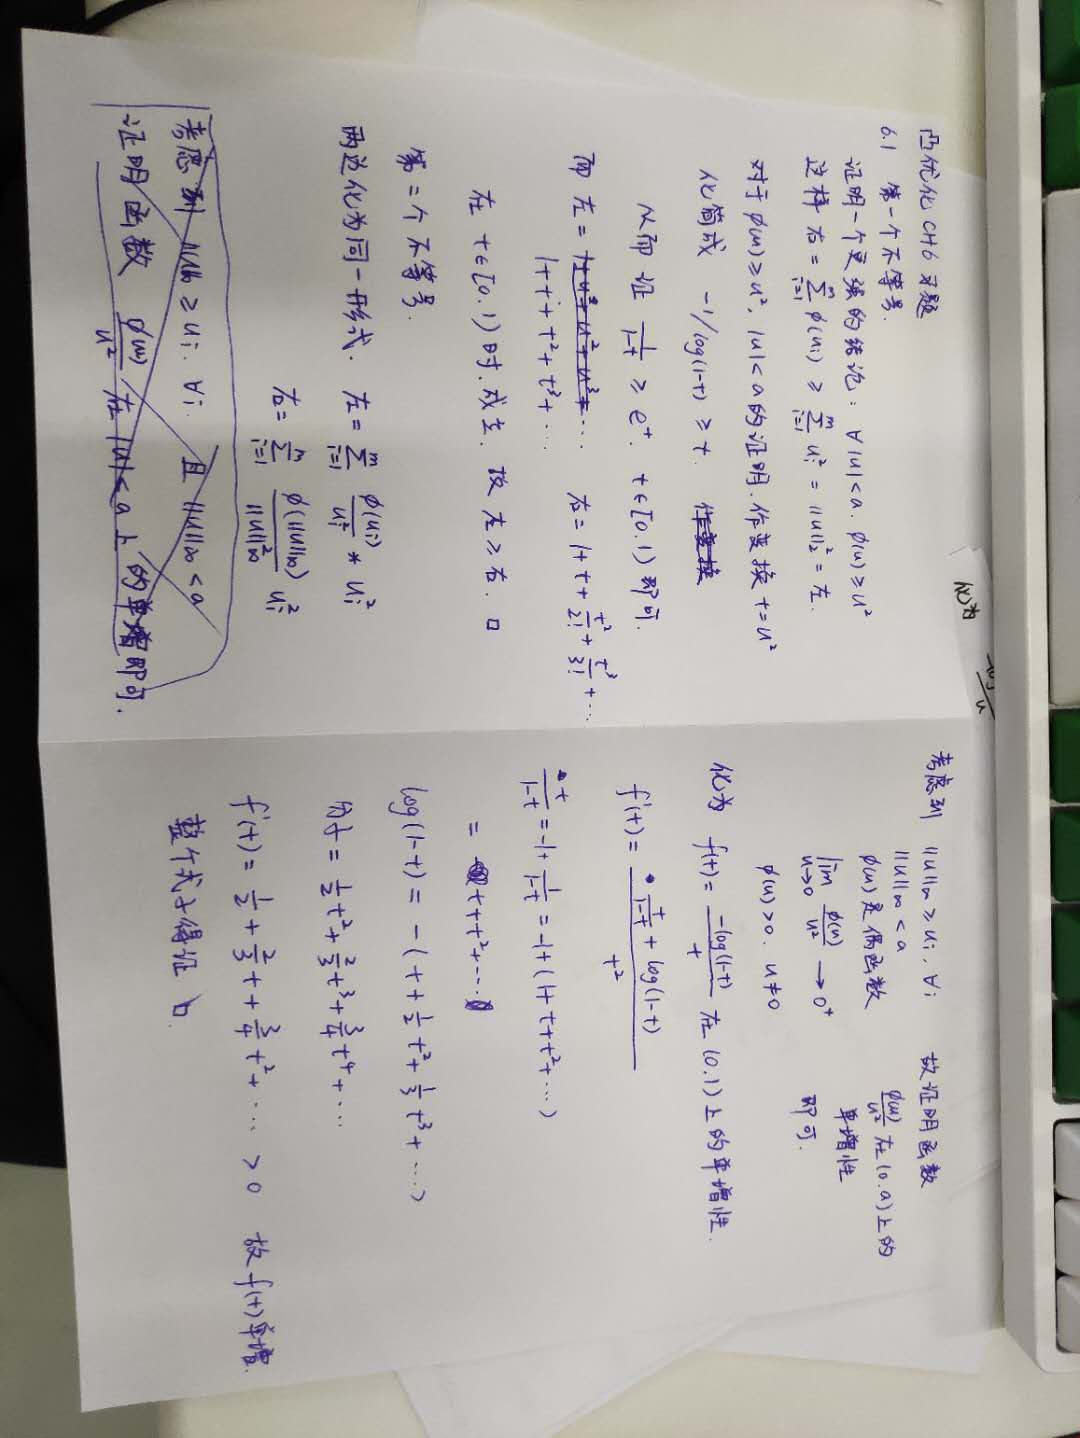 化为 -log/u
凸优化 CH6 习题
6.1 第一个不等号.
证明一个更强的结论: ∀|u|<a. ϕ(u)≥u²
这样 右 = ∑_{i=1}^{m} ϕ(u_i) ≥ ∑_{i=1}^{m} u_i² = ||u||₂² = 左.
对于 ϕ(u)≥u², |u|<a 的证明. 作变换 t=u²
化简成 -1/log(1-t) ≥ t.
从而 证 1/(1-t) ≥ e^t. t∈[0.1) 即可.
而 左 = 1+t+t²+t³+⋯ 右 = 1+t+t²/2!+t³/3!+⋯
在 t∈[0.1) 时.成立. 故 左≥右. □
第二个不等号.
两边化为同一形式. 左 = ∑_{i=1}^{m} ϕ(u_i)/u_i² * u_i²
右 = ∑_{i=1}^{m} ϕ(||u||∞)/||u||²∞ u_i²
考虑到 ||u||∞ ≥ u_i. ∀i. 且 ||u||∞ < a
证明函数 ϕ(u)/u² 在 |u|<a 上的单增即可.
考虑到 ||u||∞ ≥ u_i. ∀i 故证明函数
||u||∞ < a ϕ(u)/u² 在 (0.a) 上的
ϕ(u) 是偶函数 单增性
lim_{u→0} ϕ(u)/u² → 0⁺ 即可.
ϕ(u)>0. u≠0
化为 f(t) = -log(1-t)/t 在 (0.1) 上的单增性.
f'(t) = (t/(1-t) + log(1-t))/t²
t/(1-t) = -1+1/(1-t) = -1+(1+t+t²+⋯)
= t+t²+⋯
log(1-t) = -(t+1/2 t²+1/3 t³+⋯)
分子 = 1/2 t²+2/3 t³+3/4 t⁴+⋯
f'(t) = 1/2+2/3 t+3/4 t²+⋯ >0 故 f(t) 单增.
整个式子得证 □.